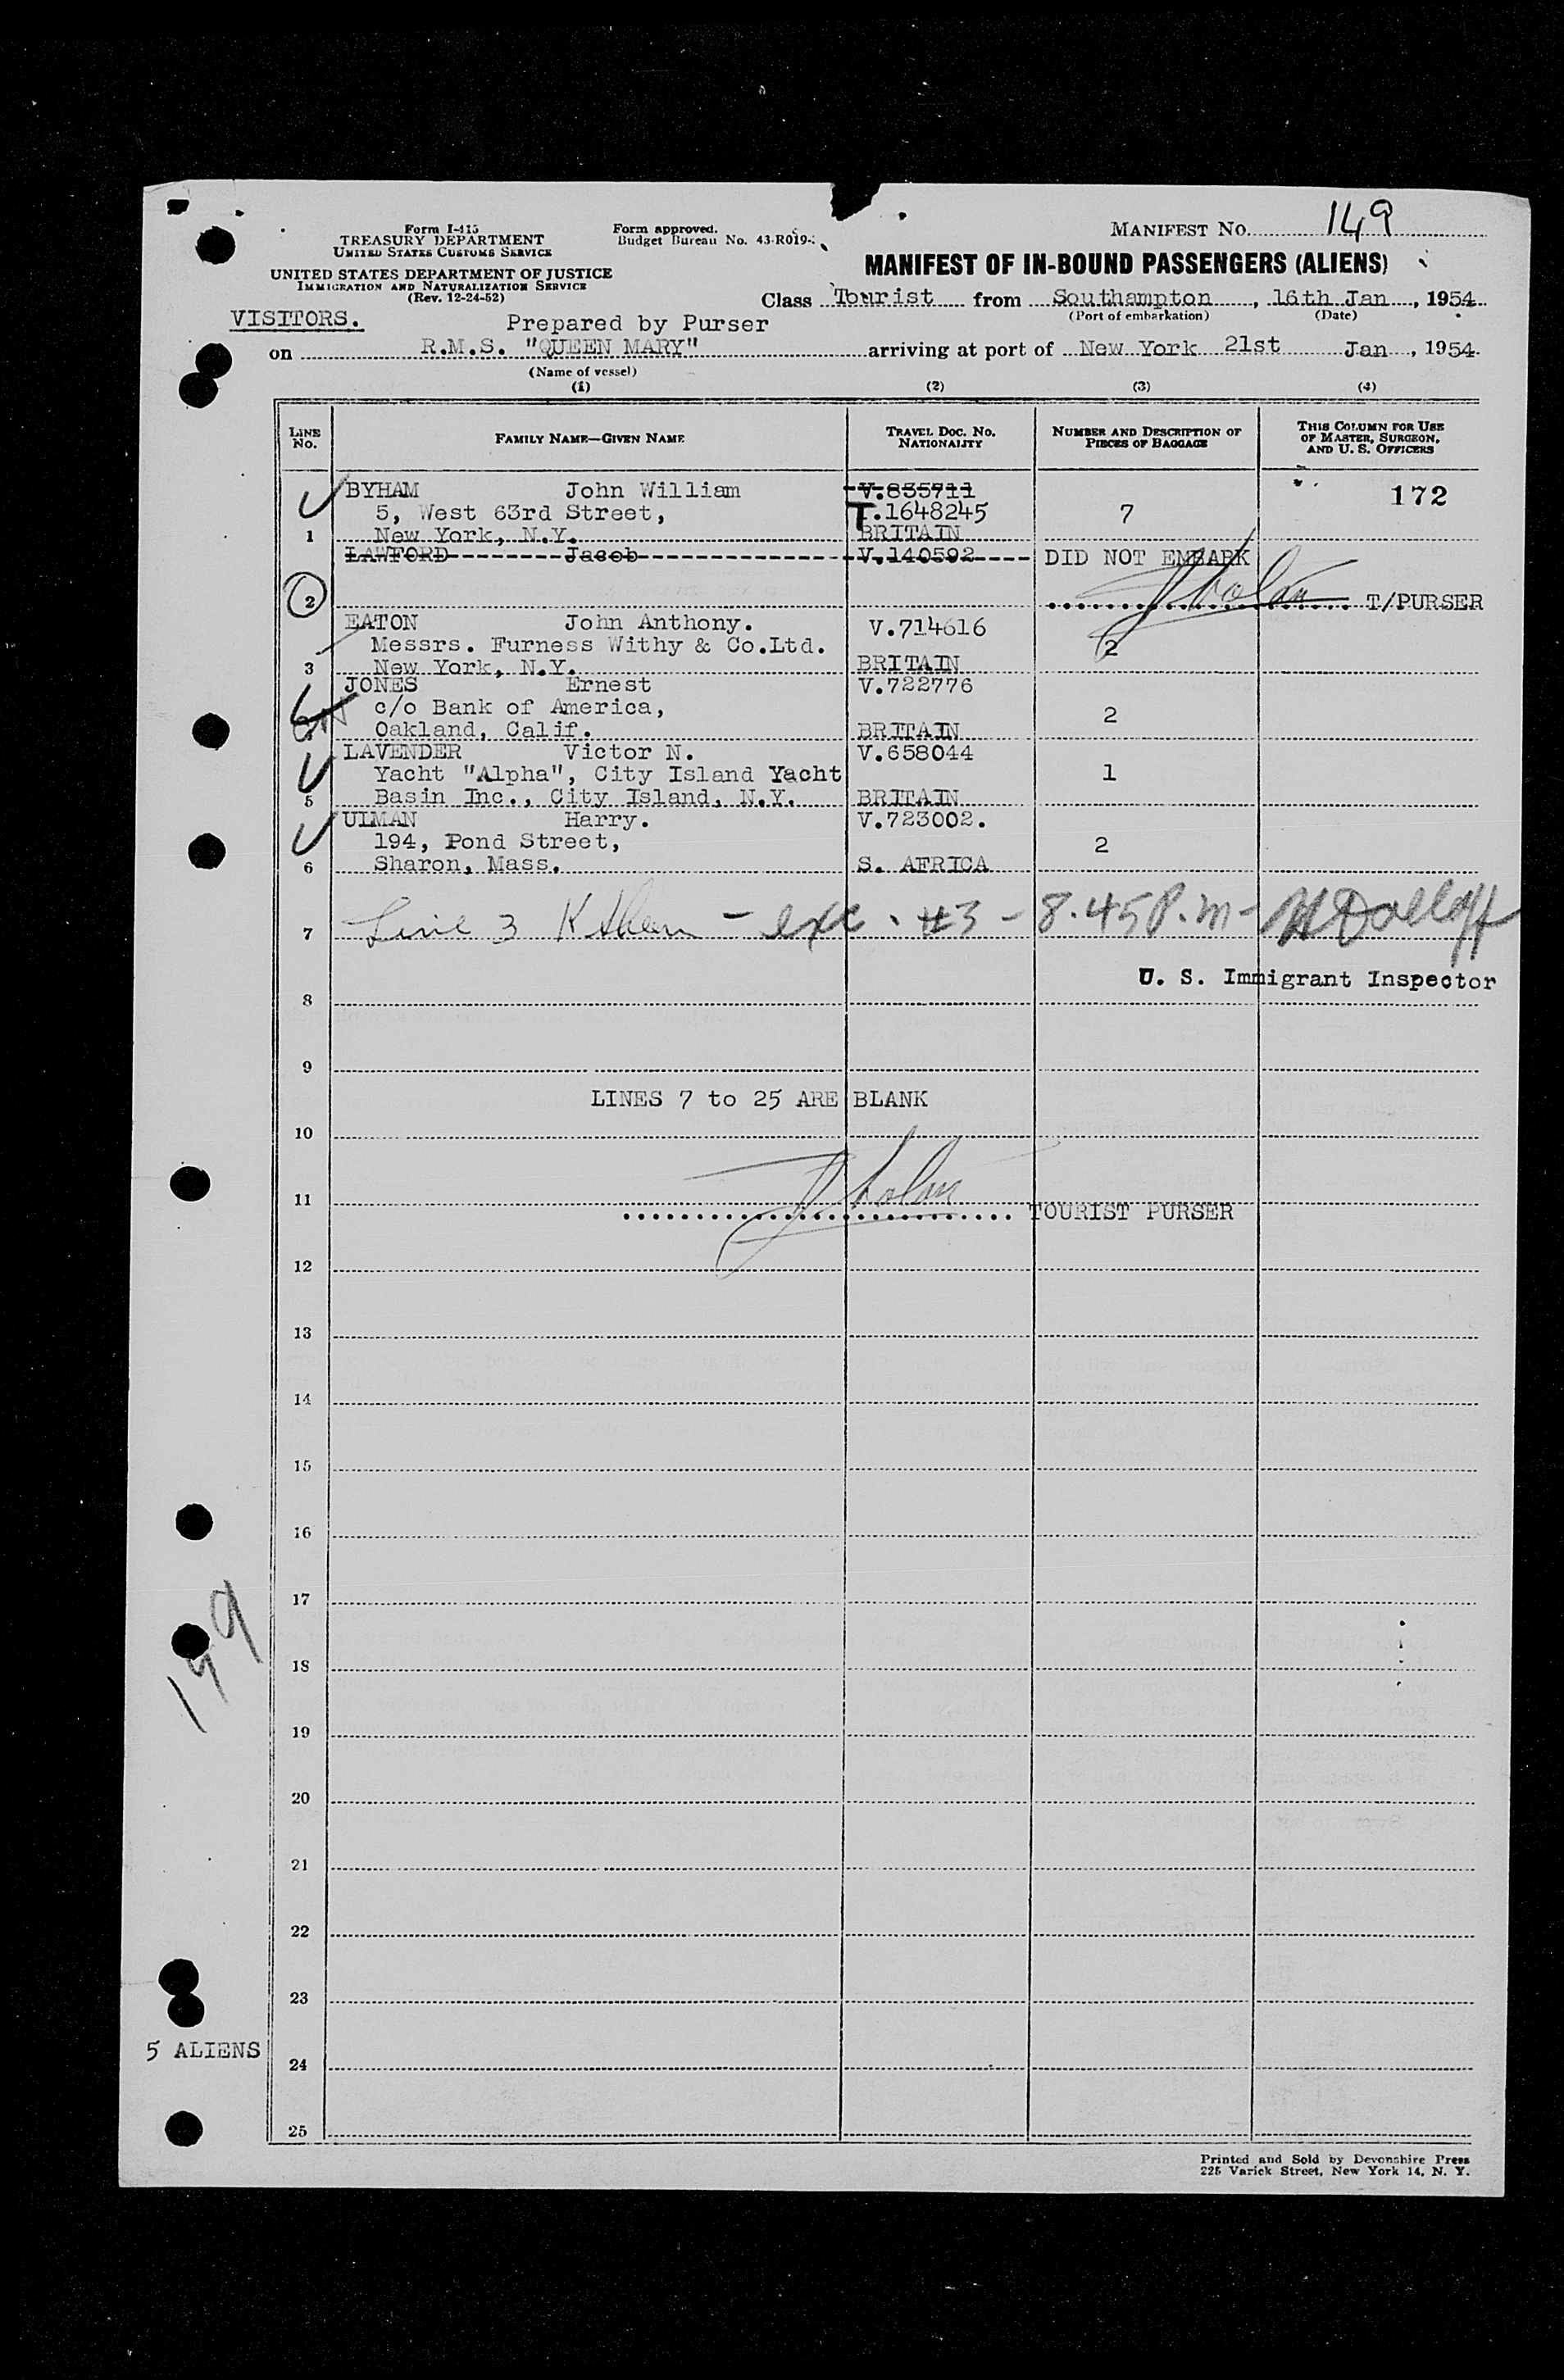 Form I-415
TREASURY DEPARTMENT
UNITED STATES CUSTOMS SERVICE
UNITED STATES DEPARTMENT OF JUSTICE
IMMIGRATION AND NATURALIZATION SERVICE
(Rev. 12-24-52)
Form approved.
Budget Bureau No. 43-R019-
MANIFEST NO. 149
MANIFEST OF IN-BOUND PASSENGERS (ALIENS)
Class Tourist from Southampton, 16th Jan, 1954
(Port of embarkation) (Date)
VISITORS. Prepared by Purser
on R.M.S. "QUEEN MARY" arriving at port of New York 21st Jan, 1954.
(Name of vessel)
(1) (2) (3) (4)
LINE NO. FAMILY NAME—GIVEN NAME TRAVEL DOC. NO. NATIONALITY NUMBER AND DESCRIPTION OF PIECES OF BAGGAGE THIS COLUMN FOR USE OF MASTER, SURGEON, AND U. S. OFFICERS
BYHAM John William V.835711 172
5, West 63rd Street, T.1648245 7
1 New York, N.Y. BRITAIN
LAWFORD Jacob V.140592 DID NOT EMBARK
2 T/PURSER
EATON John Anthony. V.714616
Messrs. Furness Withy & Co.Ltd. 2
3 New York, N.Y. BRITAIN
JONES Ernest V.722776
c/o Bank of America, 2
Oakland, Calif. BRITAIN
LAVENDER Victor N. V.658044
Yacht "Alpha", City Island Yacht 1
5 Basin Inc., City Island, N.Y. BRITAIN
ULMAN Harry. V.723002.
194, Pond Street, 2
6 Sharon, Mass. S. AFRICA
7 Line 3 - exc. #3 - 8.45 P.m -
U. S. Immigrant Inspector
8
9
LINES 7 to 25 ARE BLANK
10
11
TOURIST PURSER
12
13
14
15
16
17
149
18
19
20
21
22
23
5 ALIENS
24
25
Printed and Sold by Devonshire Press
225 Varick Street, New York 14, N. Y.